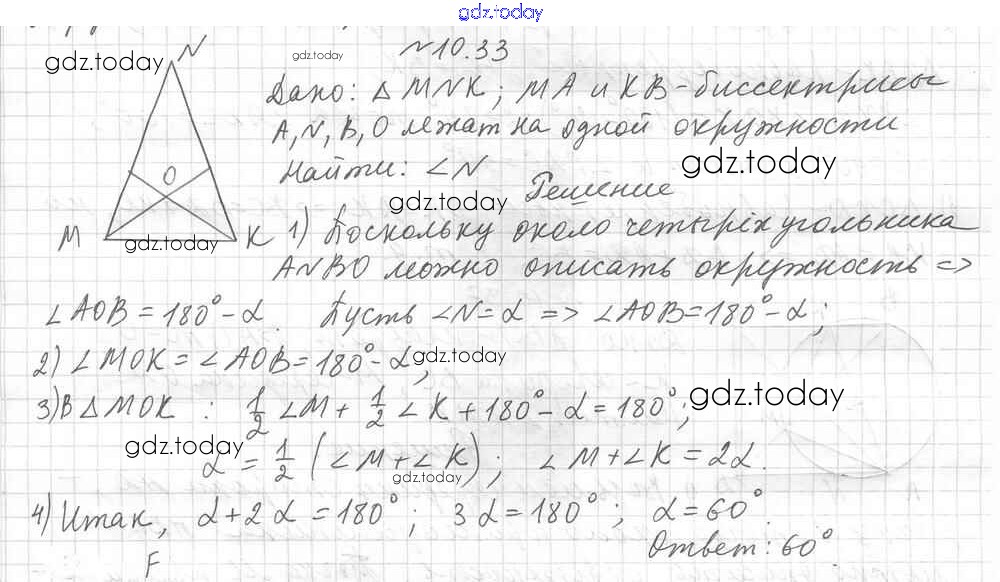 gdz.today
N
gdz.today
gdz.today
№10.33
Дано: △MNK; MA и KB-биссектрисы
A, N, B, O лежат на одной окружности
Найти: ∠N
gdz.today
gdz.today
Решение
O
M
K
gdz.today
1) Поскольку около четырёхугольника
ANBO можно описать окружность =>
∠AOB = 180° - α. Пусть ∠N = α => ∠AOB = 180° - α;
2) ∠MOK = ∠AOB = 180° - α;
gdz.today
3) В △MOK : 1/2 ∠M + 1/2 ∠K + 180° - α = 180°;
gdz.today
gdz.today
α = 1/2 (∠M + ∠K); ∠M + ∠K = 2α.
gdz.today
4) Итак, α + 2α = 180°; 3α = 180°; α = 60°.
Ответ: 60°.
F
gdz.today